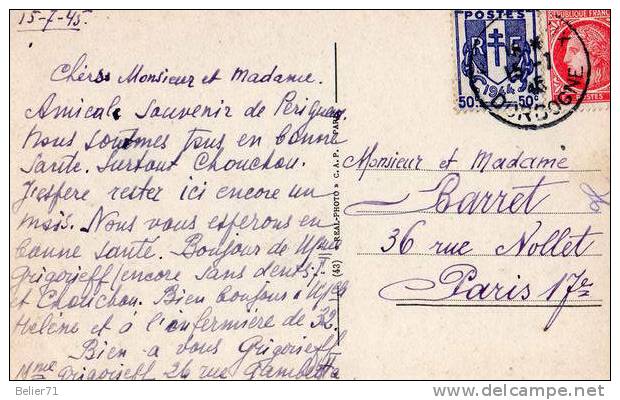 15-7-45.
Chers Monsieur et Madame.
Amical souvenir de Périgueux
Nous sommes tous en bonne
santé. Surtout Chouchou.
J'espère rester ici encore un
mois. Nous vous espérons en
bonne santé. Bonjour de Mme
Grigorieff (encore sans dents)
et Chouchou. Bien bonjour à
Hélène et à l'infermière de 32.
Bien à vous Grigorieff
Mme Grigorieff 24 rue Gambetta
(43) «REAL-PHOTO» C.A.P. PARIS
POSTES
RF
50c 1944 50c
RÉPUBLIQUE FRANC
POSTES
DORDOGNE
Monsieur et Madame
Barret
36 rue Nollet
Paris 17e
Belier71
delcampe.net